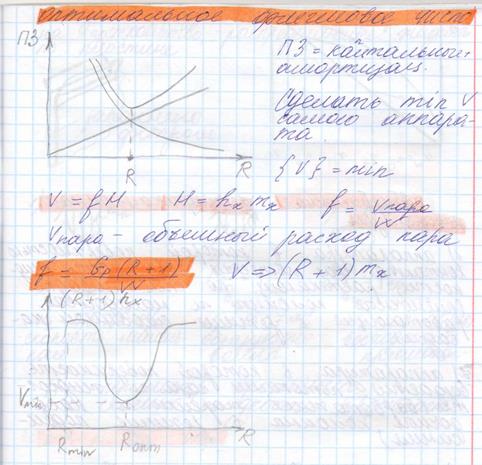 оптимальное флегмовое число
ПЗ
ПЗ = капитальные+
амортизац.
Сделать min V
самого аппара-
та.
R
R
{V} = min
V = fH H = hₓ mₓ f = Vпара/W
Vпара - объемный расход пара
f = Gp(R+1)/W V => (R+1)mₓ
(R+1)hₓ
Vmin
Rmin Rопт R